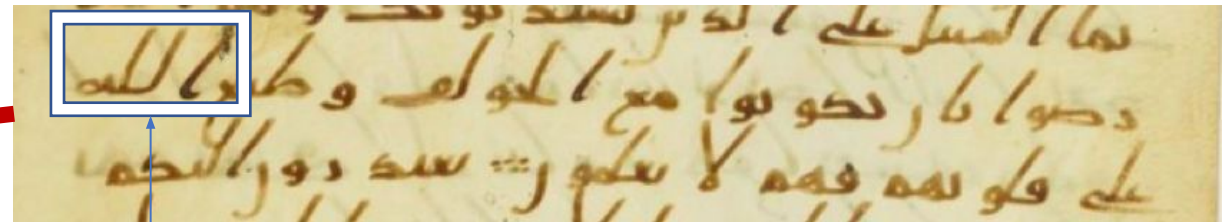 نما السبيل على الذين يستذنونك
رضوا بان يكونوا مع الخولف وطبع الله
على قلوبهم فهم لا يعلمون يعتذرون اليكم